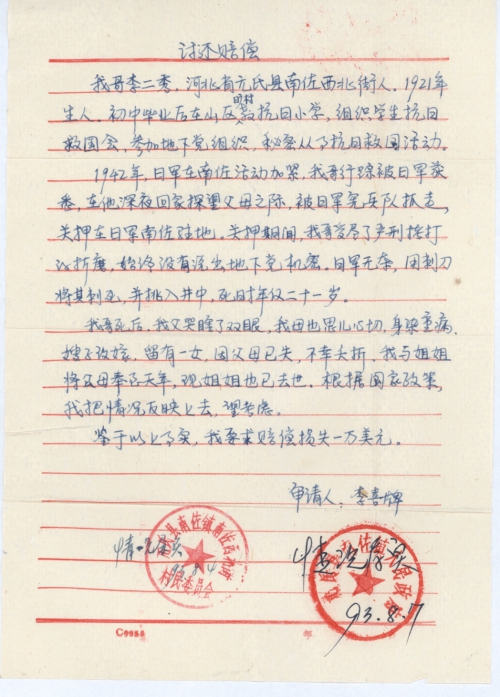 讨还赔偿
我哥李二秃，河北省元氏县南佐西北街人，1921年
生人，初中毕业后在山区
抗日小学，组织学生抗日
救国会，参加地下党组织，秘密从事抗日救国活动。
1942年，日军在南佐活动加紧，我哥行踪被日军获
悉，在他深夜回家探望父母之际，被日军宪兵队抓走，
关押在日军南佐驻地。关押期间，我哥受尽了严刑拷打
以折磨，始终没有说出地下党机密。日军无奈，用刺刀
将其刺死，并挑入井中，死时年仅二十一岁。
我哥死后，我父哭瞎了双眼，我母也思儿心切，身染重病，
嫂子改嫁，留有一女，因父母已失，不幸夭折，我与姐姐
将父母奉了天年，现姐姐也已去世。根据国家政策，
我把情况反映上去，望考虑。
鉴于以上事实，我要求赔偿损失一万美元。
申请人：李喜牌
情况属实
县南佐镇南佐
村民委员会
情况属实
93.8.7
年